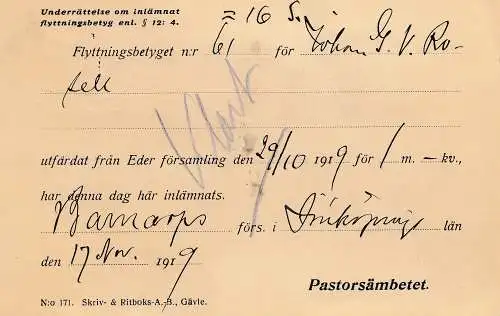 Underrättelse om inlämnat
flyttningsbetyg enl. § 12: 4.
= 16 S.
Flyttningsbetyget n:r 61 för Johan G. V. Ro-
sell
Klart
utfärdat från Eder församling den 29/10 1919 för 1 m. – kv.,
har denna dag här inlämnats.
Barnarps förs. i Jönköpings län
den 17 Nov. 1919
Pastorsämbetet.
N:o 171. Skriv- & Ritboks-A.-B., Gävle.